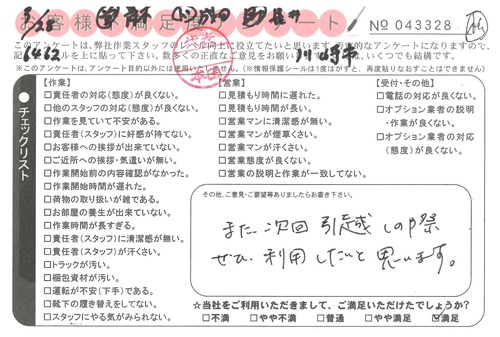 お客様満足度アンケート
No 043328
このアンケートは、弊社作業スタッフのレベル向上に役立てたいと思います。
※このアンケートは、アンケート目的以外には使用いたしません。(※情報保護シールは1度はがすと、再度貼りなおすことはできません)
チェックリスト
【作業】
□責任者の対応(態度)が良くない。
□他のスタッフの対応(態度)が良くない。
□作業を見ていて不安がある。
□責任者(スタッフ)に好感が持てない。
□お客様への挨拶が出来ていない。
□ご近所への挨拶・気遣いが無い。
□作業開始前の内容確認がなかった。
□作業開始時間が遅れた。
□荷物の取り扱いが雑である。
□お部屋の養生が出来ていない。
□作業時間が長すぎる。
□責任者(スタッフ)に清潔感が無い。
□責任者(スタッフ)が汗くさい。
□トラックが汚い。
□梱包資材が汚い。
□運転が不安(下手)である。
□靴下の履き替えをしてない。
□スタッフにやる気がみられない。
【営業】
□見積もり時間に遅れた。
□見積もり時間が長い。
□営業マンに清潔感が無い。
□営業マンが煙草くさい。
□営業マンが汗くさい。
□営業態度が良くない。
□営業の説明と作業が一致してない。
【受付・その他】
□電話の対応が良くない。
□オプション業者の説明・作業が良くない。
□オプション業者の対応(態度)が良くない。
その他、ご意見・ご要望等ありましたらお書き下さい。
また 次回 引越しの際
ぜひ 利用したいと思います。
☆当社をご利用いただきまして、ご満足いただけたでしょうか?
□不満 □やや不満 □普通 □やや満足 ☑満足